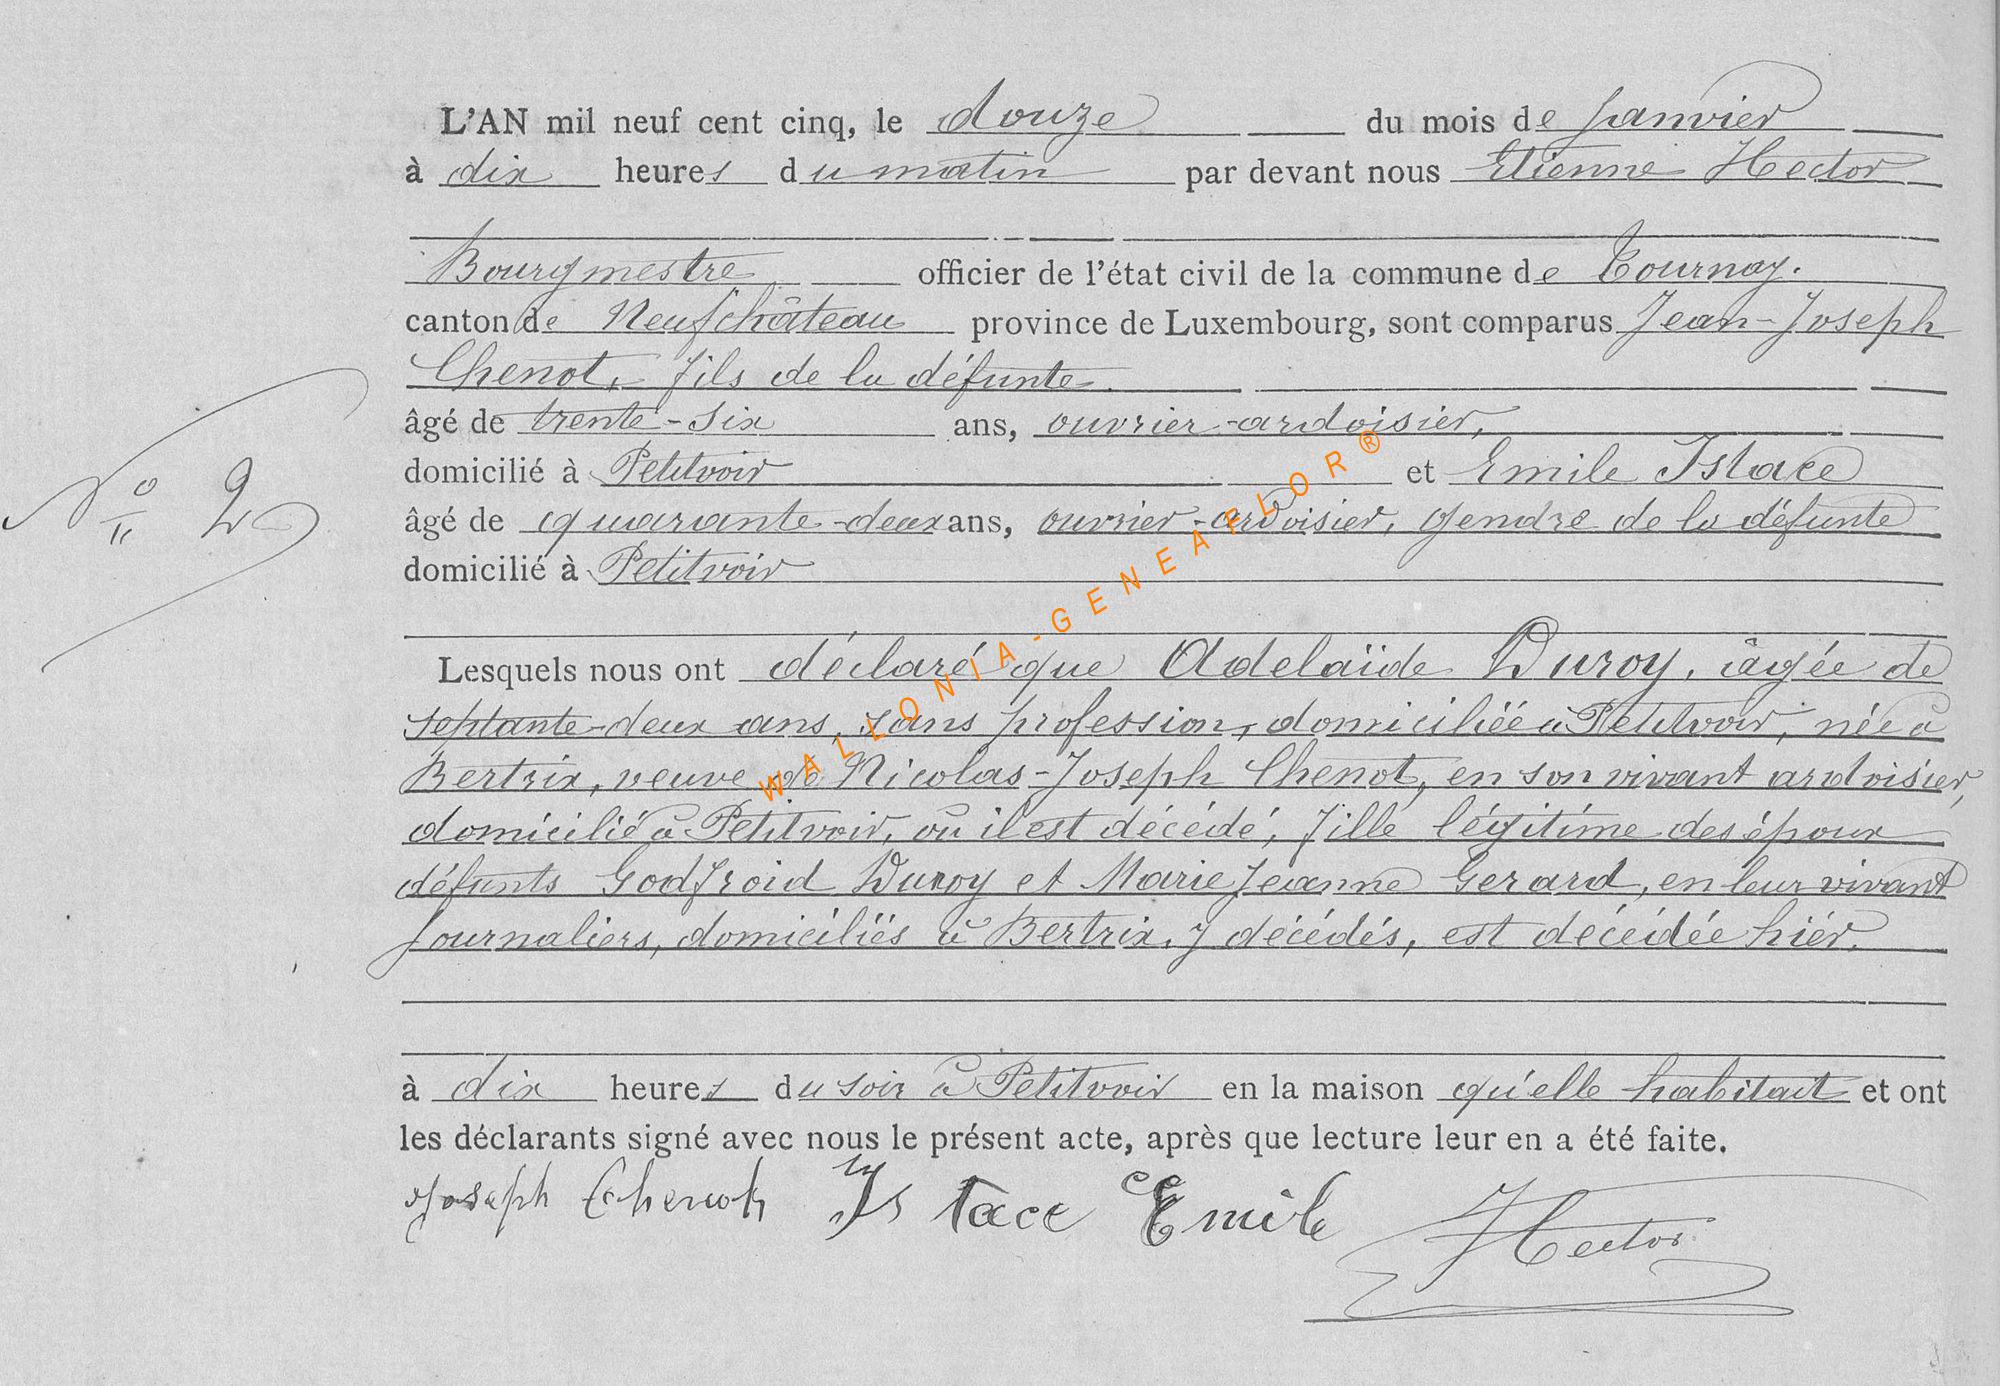 L'AN mil neuf cent cinq, le douze du mois de Janvier
à dix heures du matin par devant nous Etienne Hector
Bourgmestre officier de l'état civil de la commune de Tournay.
canton de Neufchâteau province de Luxembourg, sont comparus Jean-Joseph
Chenot, fils de la défunte.
âgé de trente-six ans, ouvrier-ardoisier,
domicilié à Petitvoir et Emile Istace
âgé de quarante-deux ans, ouvrier-ardoisier, gendre de la défunte
domicilié à Petitvoir
N° 2
Lesquels nous ont déclaré que Adelaïde Duroy, âgée de
septante-deux ans, sans profession, domiciliée à Petitvoir, née à
Bertrix, veuve de Nicolas-Joseph Chenot, en son vivant ardoisier,
domicilié à Petitvoir, où il est décédé, fille légitime des époux
défunts Godfroid Duroy et Marie Jeanne Gerard, en leur vivant
journaliers, domiciliés à Bertrix, y décédés, est décédée hier.
à dix heures du soir à Petitvoir en la maison qu'elle habitait et ont
les déclarants signé avec nous le présent acte, après que lecture leur en a été faite.
Joseph Chenot Istace Emile Hector
WALLONIA-GENEAFLOR®